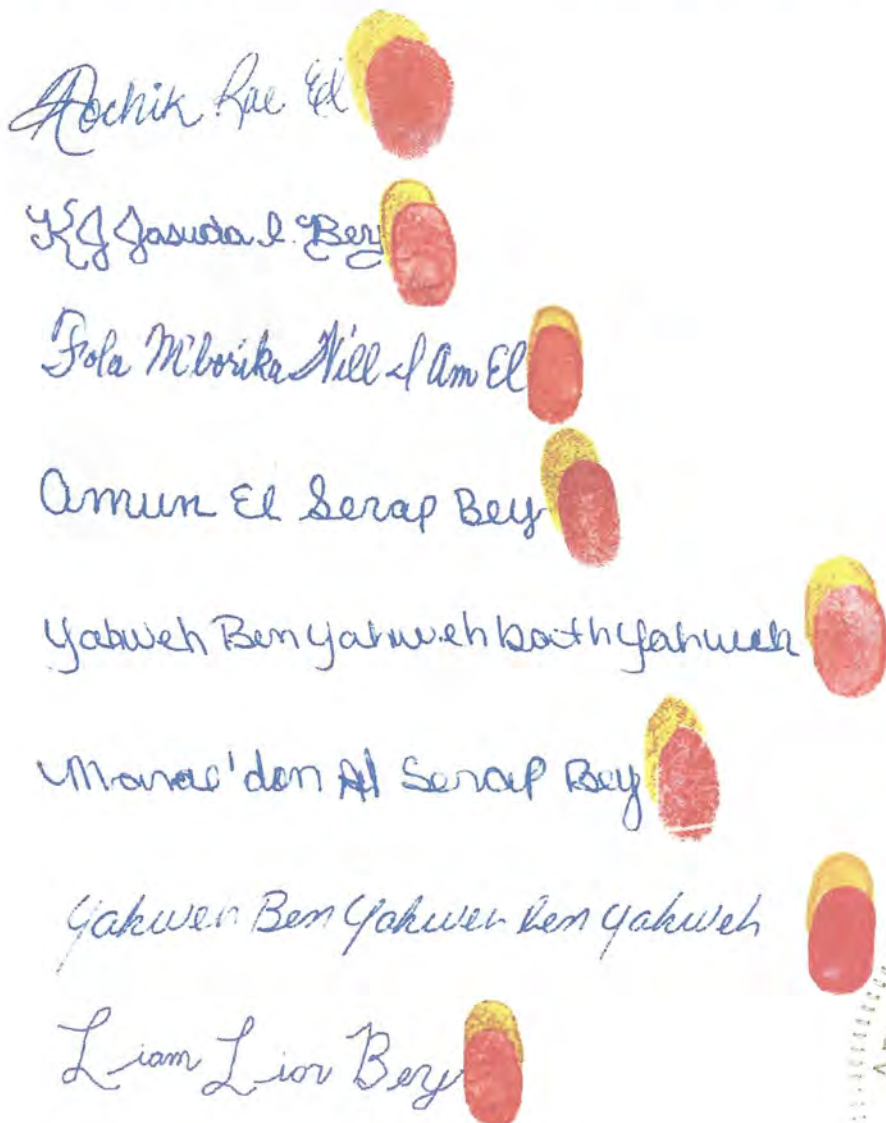 Rae El
KJ Jasuda l. Bey
Fola M'borika Will I Am El
Amun El Serap Bey
Yahweh Ben Yahweh baith Yahweh
Al Serap Bey
Yahweh Ben Yahweh ben Yahweh
Liam Lior Bey